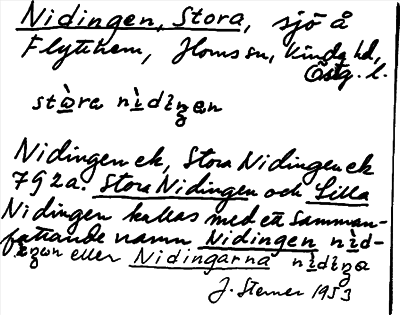 Nidingen, Stora, sjö å
Flytthem, Horns sn, Kinda hd,
Östg. l.
stòra nìdiŋən
Nidingen ek, Stora Nidingen ek
7 G 2a. Stora Nidingen och Lilla
Nidingen kallas med ett samman-
fattande namn Nidingen nìd-
iŋən eller Nidingarna nìdiŋa
J. Sterner 1953